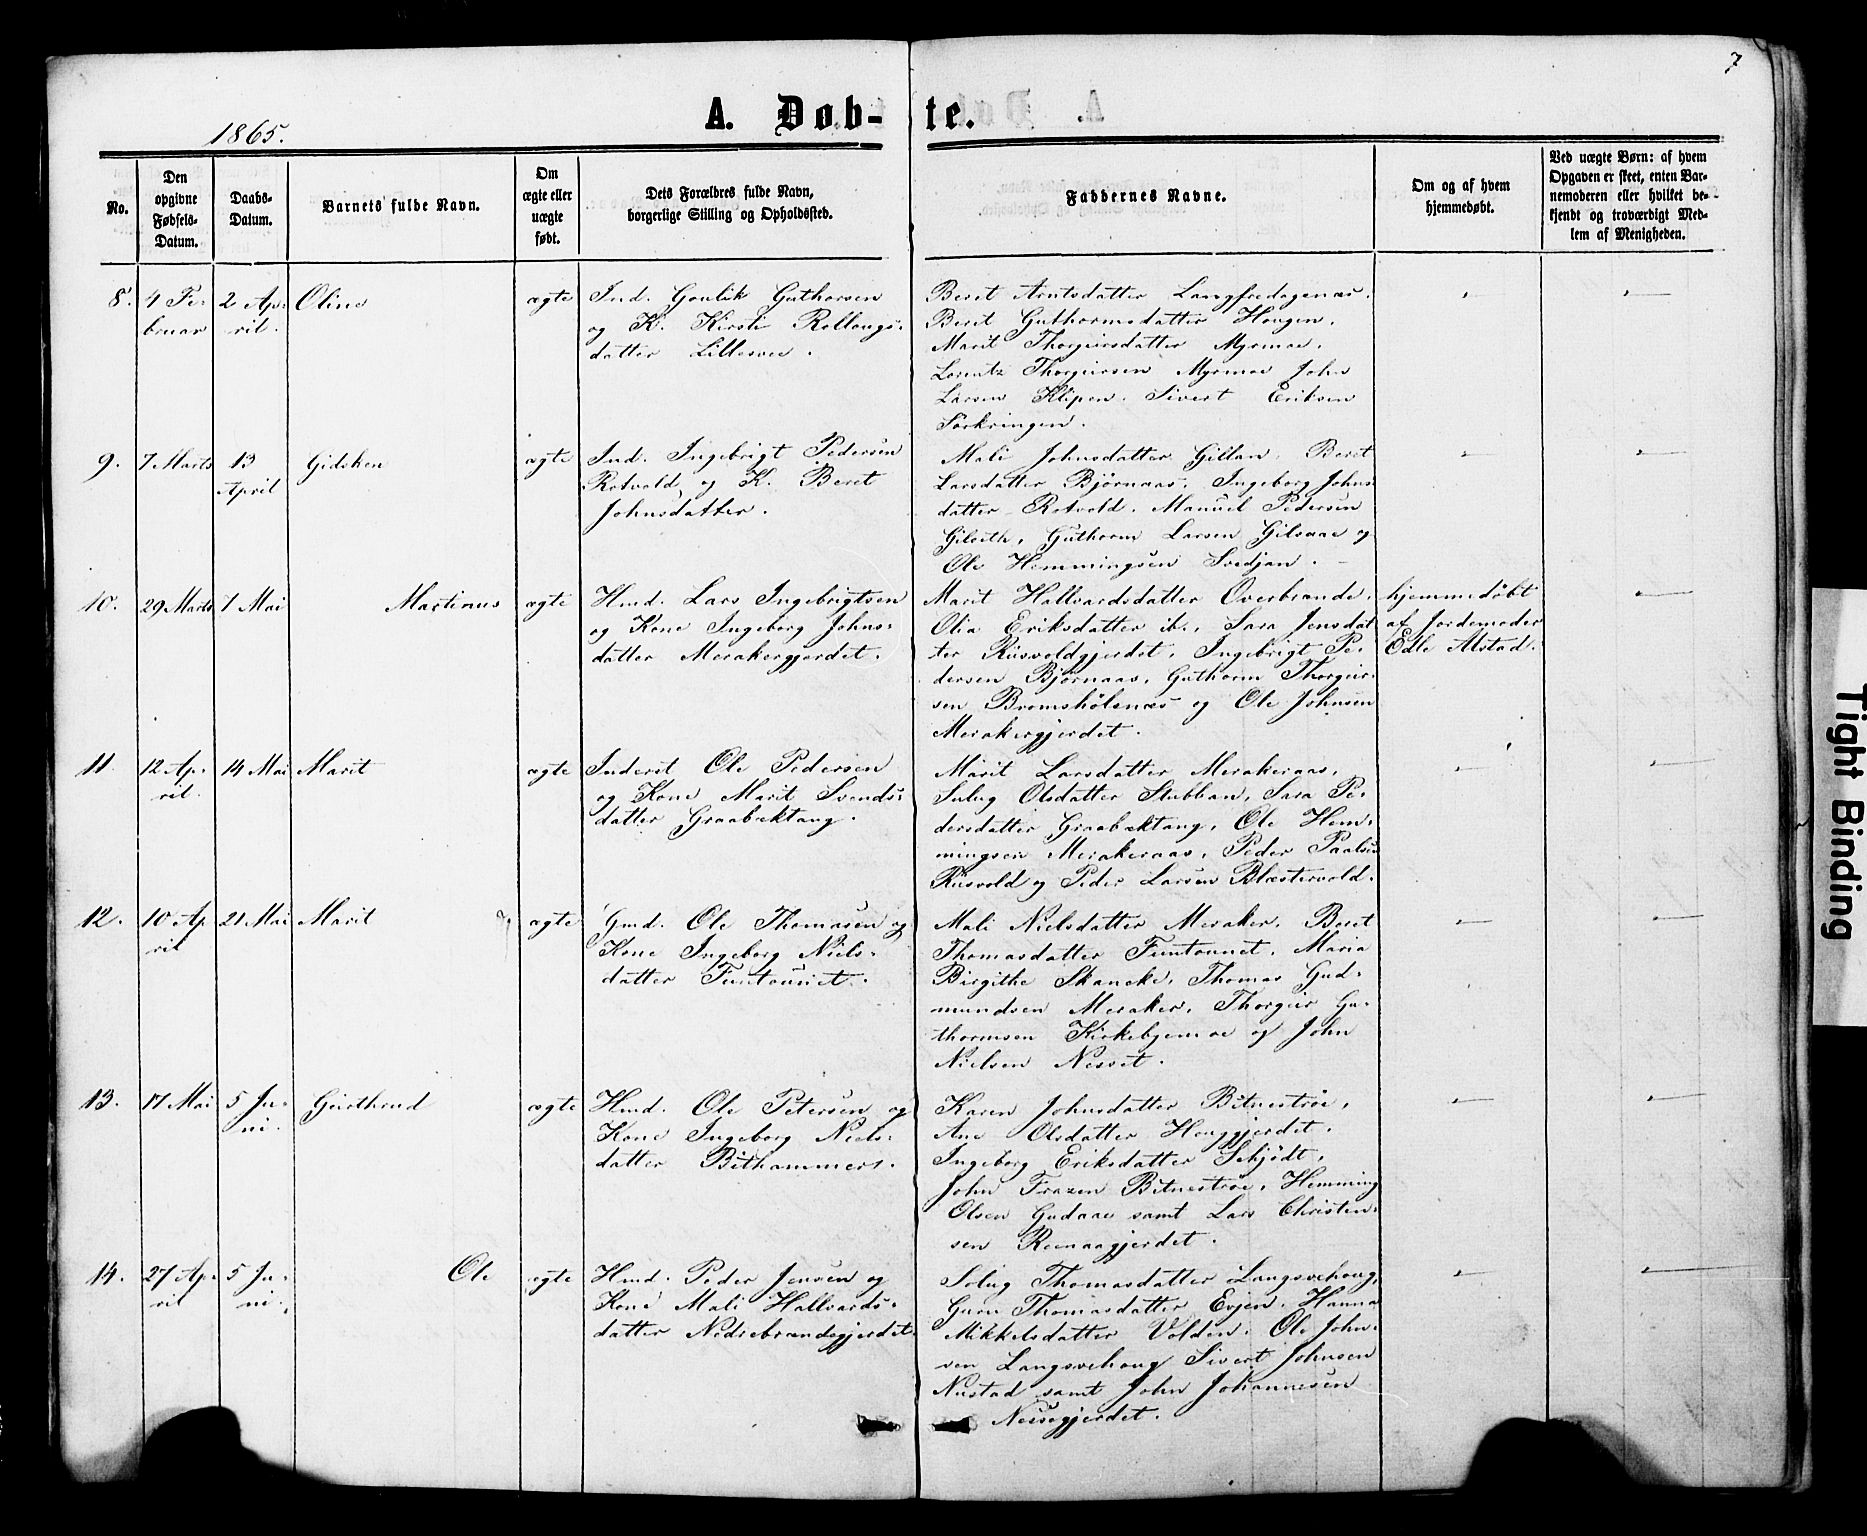 7
A. Døb-te.
1865.
No.
Den
opgivne
Fødsels-
Datum.
Daabs-
Datum.
Barnets fulde Navn.
Om
ægte eller
uægte
født.
Dets Forældres fulde Navn,
borgerlige Stilling og Opholdssted.
Faddernes Navne.
Om og af hvem
hjemmedøbt.
Ved uægte Børn: af hvem
Opgaven er skeet, enten Bar-
nemoderen eller hvilket be-
kjendt og troværdigt Med-
lem af Menigheden.
8.
4 Fe-
bruar
2 Ap-
ril.
Oline
ægte
Ind. Goulik Guthorsen
og K. Kirsti Rollougs-
datter Lillesvee.
Beret Arntsdatter Langfredagenæs.
Berit Guthormsdatter Hougen.
Marit Thorgeirsdatter Myrmoe.
Lorentz Thorgeirsen Myrmoe John
Larsen Klipen. Sivert Eriksen
Sörkringen.
9.
7 Marts
13
April
Gidsken
ægte
Ind. Ingebrigt Pedersen
Rotvold og K. Beret
Johnsdatter.
Mali Johnsdatter Gillan. Beret
Larsdatter Björnaas. Ingeborg Johns
datter Rotvold. Manuel Pedersen
Guthorm Larsen Gilsaae og
Ole Hemmingsen Svedjan.
10.
29 Marts
7 Mai
Martinus
ægte
Hmd. Lars Ingebrigtsen
og Kone Ingeborg Johns-
datter Merakergjerdet.
Marit Hallvardsdatter Overbrande.
Olia Eriksdatter ib., Sara Jensdat
ter Rüsvoldgjerdet, Ingebrigt Pe-
dersen Björnaas, Guthorm Thorgeir-
sen Bromshölsnæs og Ole Johnsen
Merakergjerdet.
hjemmedöbt
af Jordemoder
Edle Alstad.
11.
12 Ap-
ril.
14 Mai
Marit
ægte
Inderst Ole Pedersen
og Kone Marit Svends-
datter Graabæktang.
Marit Larsdatter Merakeraas,
Solug Olsdatter Stubban, Sara Pe-
dersdatter Graabæktang, Ole Hem-
mingsen Merakeraas, Peder Paalsen
Rüsvold og Peder Larsen Blæstervold.
12.
10 Ap
ril
21 Mai
Marit
ægte
Gmd. Ole Thomasen og
Kone Ingeborg Niels-
datter Funtaunet.
Mali Nielsdatter Meraker. Beret
Thomasdatter Funtaunet, Maria
Birgithe Skancke, Thomas Gud-
mundsen Meraker, Thorgeir Gu-
thormsen Kirkebyemoe og John
Nielsen Nesset.
13.
17 Mai
5 Ju-
ni.
Gurthrud
ægte
Hmd. Ole Petersen og
Kone Ingeborg Niels-
datter Bithammers.
Karen Johnsdatter Bitneströe,
Ane Olsdatter Houggjerdet.
Ingeborg Eriksdatter Schjödt,
John Frazen Bitneströe, Hemming
Olsen Gudaae samt Lars Christen-
sen Remaagjerdet.
14.
27 Ap-
ril
5 Ju-
ni.
Ole
ægte
Hmd. Peder Jensen og
Kone Mali Hallvards-
datter Nedrebrændegjerdet.
Solug Thomasdatter Langsvehoug,
Guru Thomasdatter Evjen. Hanna
Mikkelsdatter Volden. Ole John-
sen Langsvehoug Sivert Johnsen
Nustad samt John Johannesen
Neusegjerdet.
Tight Binding